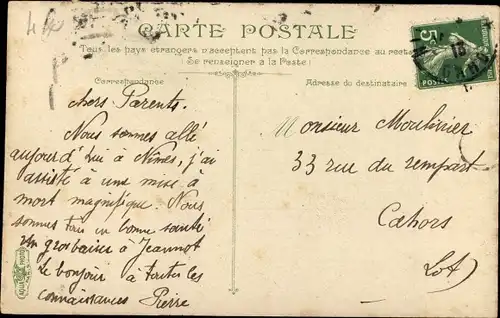 CARTE POSTALE
Tous les pays étrangers n'acceptent pas la Correspondance au recto
(Se renseigner à la Poste)
Correspondance
Adresse du destinataire
chers Parents.
Nous sommes allé
aujourd'hui à Nîmes, j'ai
assisté à une mise à
mort magnifique. Nous
sommes tous en bonne santé
un gros baiser à Jeannot
le bonjour à toutes les
connaissances Pierre
Monsieur Moulinier
33 rue du rempart
Cahors
(Lot)
5c
POSTES